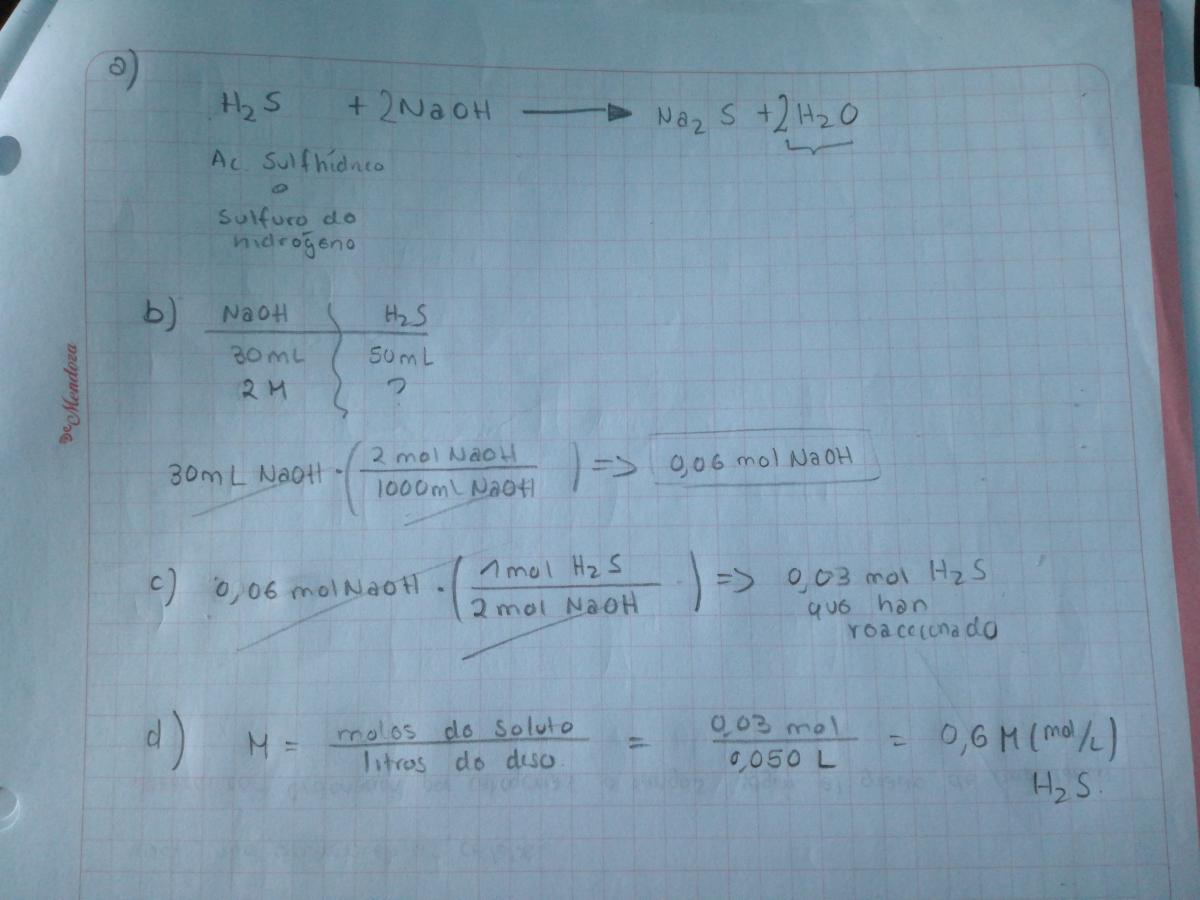 a)
H₂S + 2NaOH ⟶ Na₂S + 2H₂O
Ac. Sulfhídrico
o
Sulfuro de
hidrógeno
b) NaOH H₂S
30 mL 50 mL
2 M ?
30 mL NaOH · (2 mol NaOH / 1000 ml NaOH) => 0,06 mol NaOH
c) 0,06 mol NaOH · (1 mol H₂S / 2 mol NaOH) => 0,03 mol H₂S
que han
reaccionado
d) M = moles de soluto / litros de diso. = 0,03 mol / 0,050 L = 0,6 M (mol/L)
H₂S.
De Mendoza